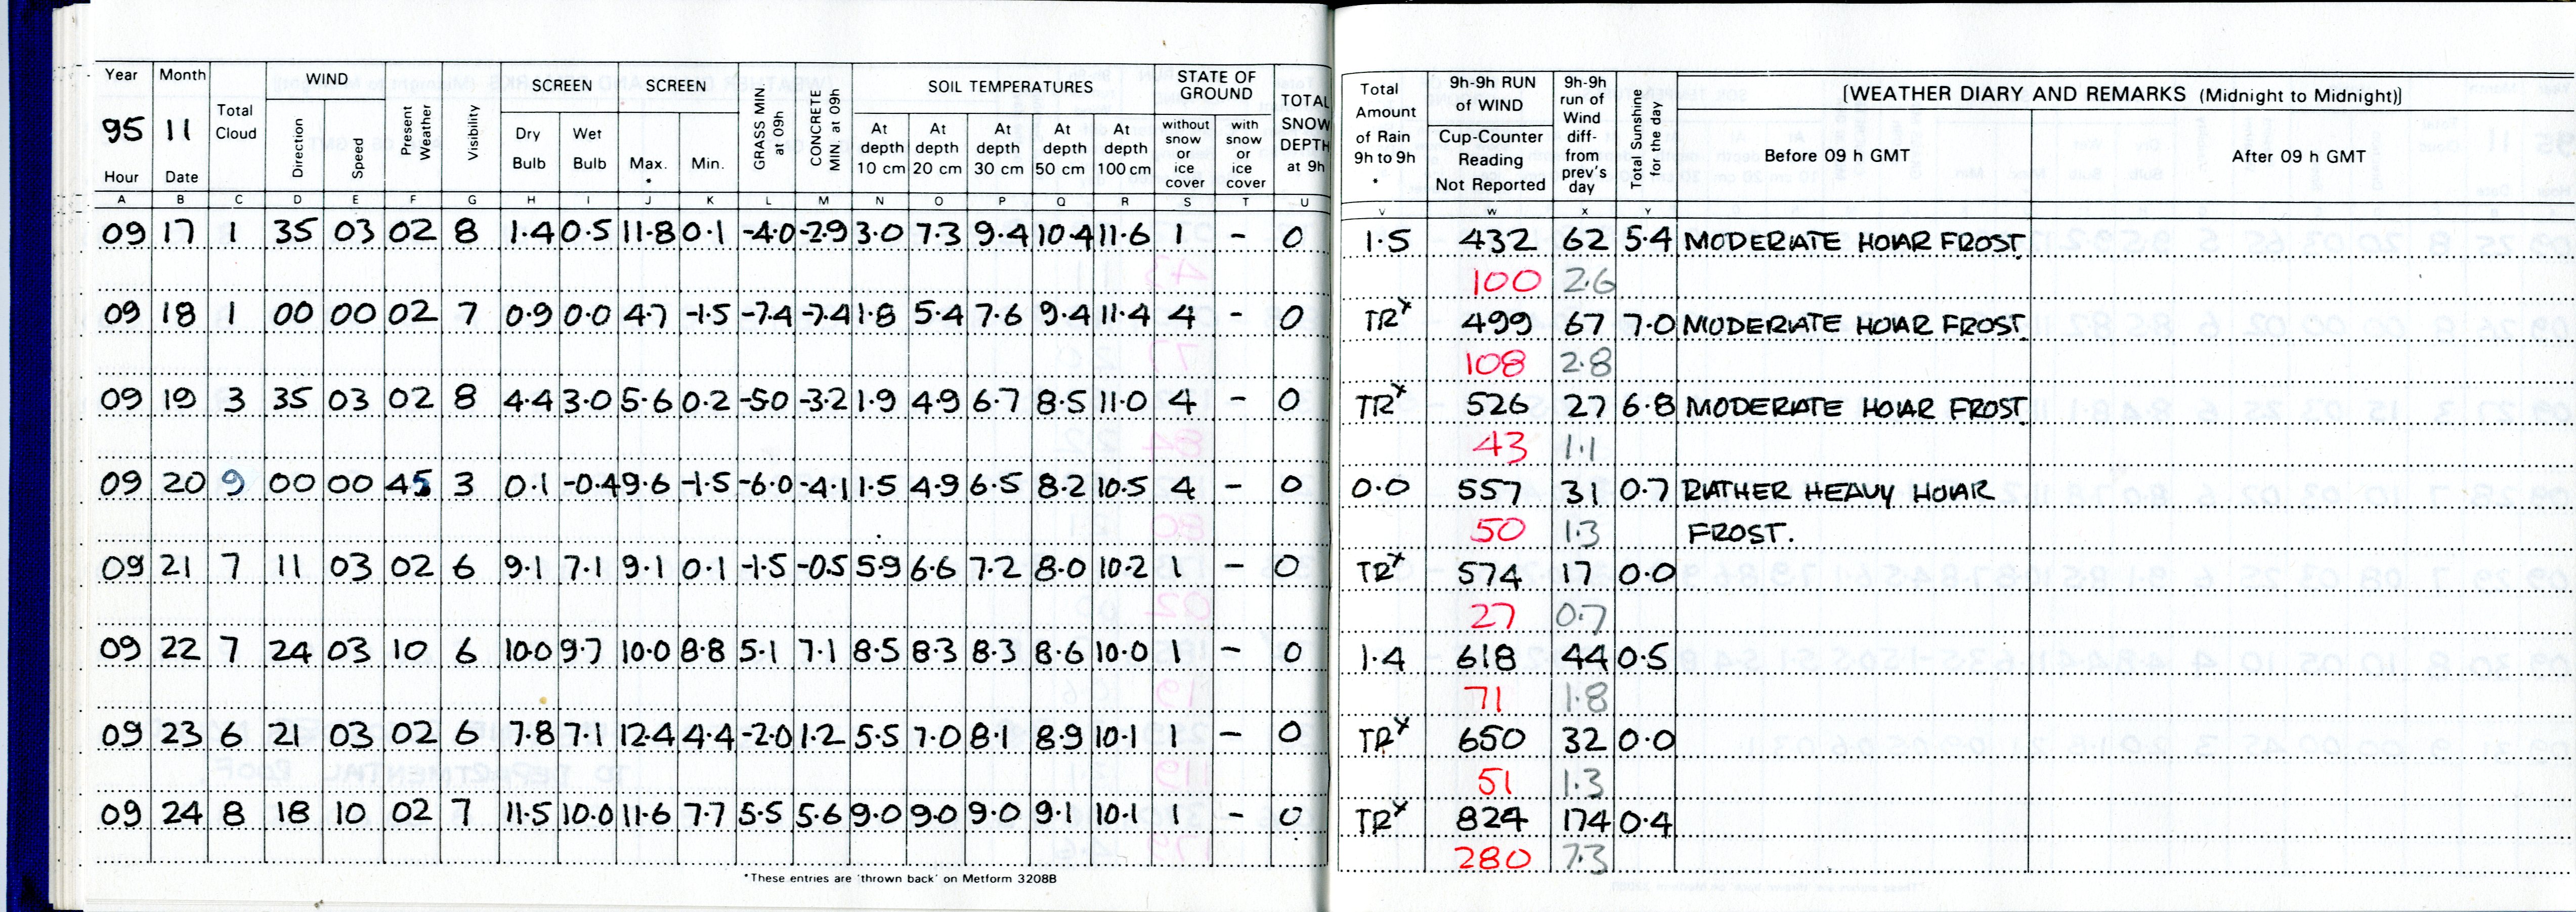 Year Month Total Cloud WIND Present Weather Visibility SCREEN SCREEN GRASS MIN. at 09h CONCRETE MIN. at 09h SOIL TEMPERATURES STATE OF GROUND TOTAL SNOW DEPTH at 9h Total Amount of Rain 9h to 9h * 9h-9h RUN of WIND 9h-9h run of Wind diff- from prev's day Total Sunshine for the day [WEATHER DIARY AND REMARKS (Midnight to Midnight)]
95 11 Direction Speed Dry Bulb Wet Bulb Max. * Min. At depth 10 cm At depth 20 cm At depth 30 cm At depth 50 cm At depth 100 cm without snow or ice cover with snow or ice cover Cup-Counter Reading Not Reported Before 09 h GMT After 09 h GMT
Hour Date
A B C D E F G H I J K L M N O P Q R S T U V W X Y
09 17 1 35 03 02 8 1.4 0.5 11.8 0.1 -4.0 -2.9 3.0 7.3 9.4 10.4 11.6 1 - 0 1.5 432 62 5.4 MODERATE HOAR FROST
100 2.6
09 18 1 00 00 02 7 0.9 0.0 4.7 -1.5 -7.4 -7.4 1.8 5.4 7.6 9.4 11.4 4 - 0 TRx 499 67 7.0 MODERATE HOAR FROST
108 2.8
09 19 3 35 03 02 8 4.4 3.0 5.6 0.2 -5.0 -3.2 1.9 4.9 6.7 8.5 11.0 4 - 0 TRx 526 27 6.8 MODERATE HOAR FROST
43 1.1
09 20 9 00 00 45 3 0.1 -0.4 9.6 -1.5 -6.0 -4.1 1.5 4.9 6.5 8.2 10.5 4 - 0 0.0 557 31 0.7 RATHER HEAVY HOAR
50 1.3 FROST.
09 21 7 11 03 02 6 9.1 7.1 9.1 0.1 -1.5 -0.5 5.9 6.6 7.2 8.0 10.2 1 - 0 TRx 574 17 0.0
27 0.7
09 22 7 24 03 10 6 10.0 9.7 10.0 8.8 5.1 7.1 8.5 8.3 8.3 8.6 10.0 1 - 0 1.4 618 44 0.5
71 1.8
09 23 6 21 03 02 6 7.8 7.1 12.4 4.4 -2.0 1.2 5.5 7.0 8.1 8.9 10.1 1 - 0 TRx 650 32 0.0
51 1.3
09 24 8 18 10 02 7 11.5 10.0 11.6 7.7 5.5 5.6 9.0 9.0 9.0 9.1 10.1 1 - 0 TRx 824 174 0.4
280 7.3
*These entries are 'thrown back' on Metform 3208B